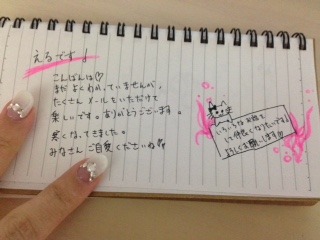 えるです!
こんばんは♡
まだ よくわかっていませんが、
たくさん メールをいただけて
楽しいです。ありがとうございます。
寒くなってきました。
みなさん ご自愛くださいね
いろいろなお話を
して仲良くなりたいです♪
よろしくお願いします!!!